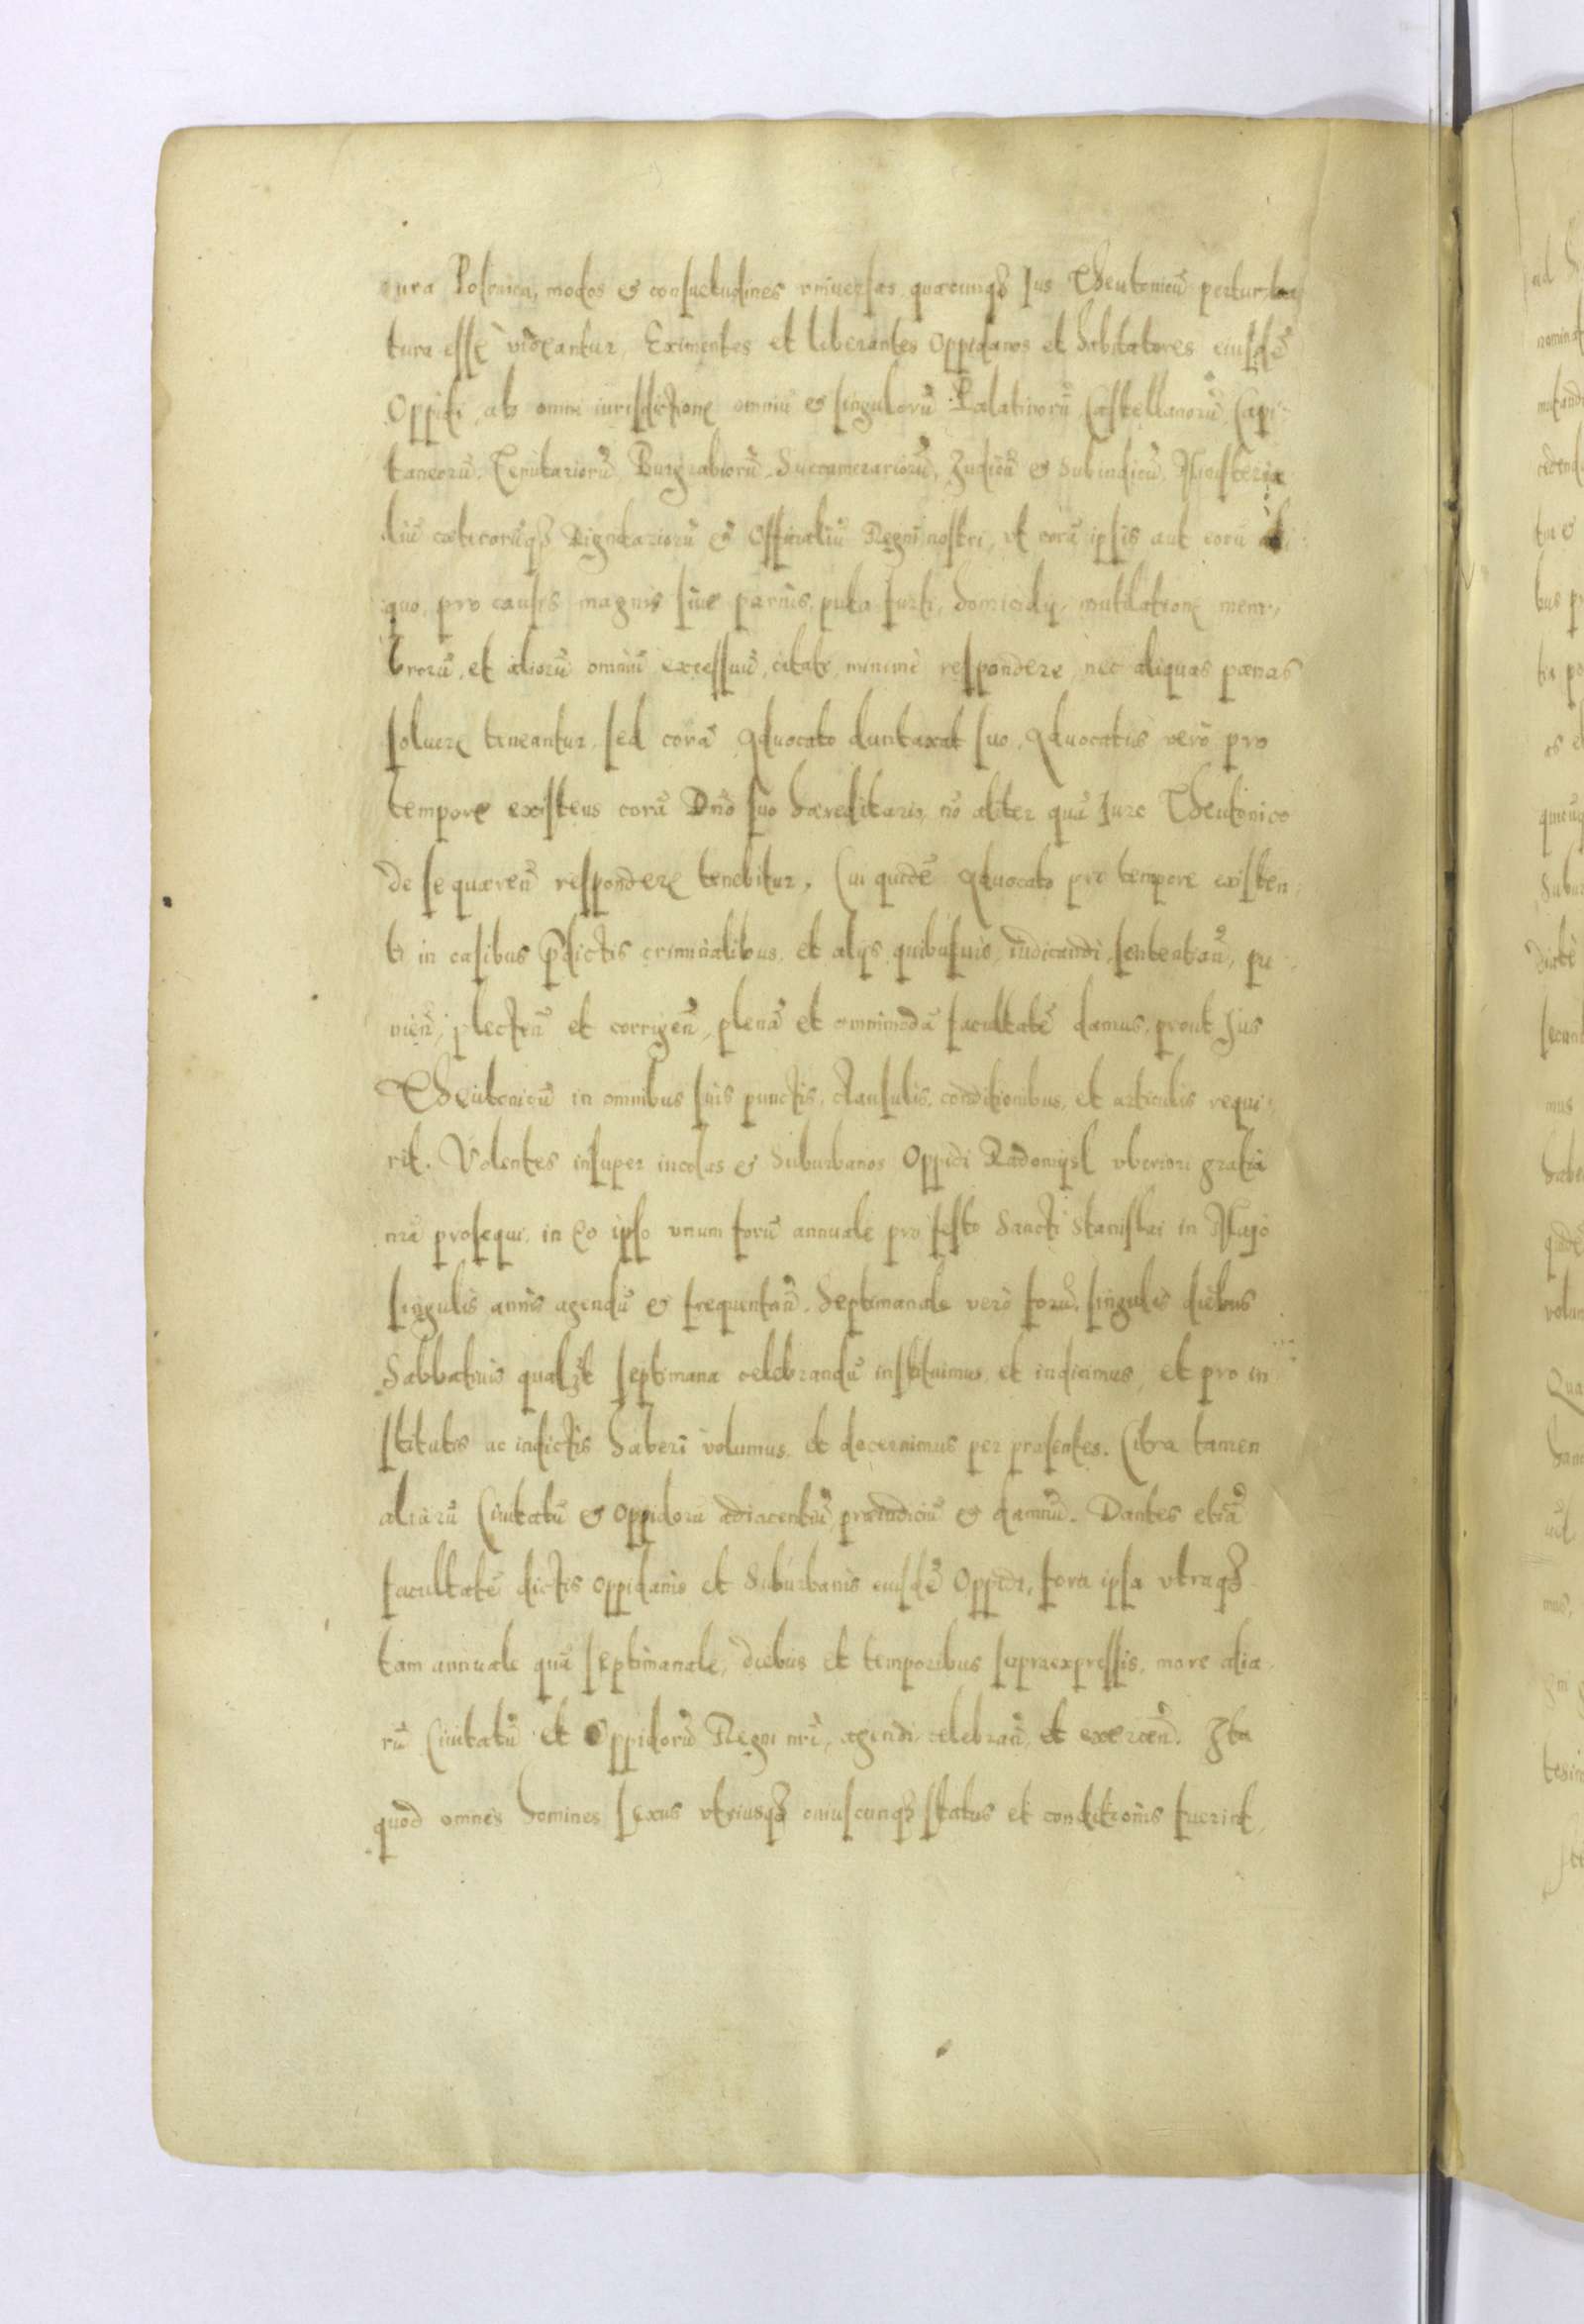 iura Polonica, modos & consuetudines vniuersas quæcunqȝ Ius Theutonicũ perturba
tura esse videantur, Eximentes et liberantes Oppidanos et habitatores eiusdẽ
Oppidi, ab omni iurisdictione omniũ & singulorũ Palatinorũ Castellanorũ, Capi-
taneorũ, Tenutariorũ, Burgrabiorũ, Succamerariorũ, Judicũ & Subiudicũ, Ministeria
liũ cæterorũqȝ Dignitariorũ & Officialiũ Regni nostri, vt corã ipsis aut eorũ ali-
quo, pro causis magnis siue paruis, puta furti, homicidij, mutilatione mem-
brorũ, et aliorũ omniũ excessuũ, citati, minimè respondere, nec aliquas pænas
soluere teneantur, sed corã Aduocato duntaxat suo, Aduocatus verò pro
tempore existens corã Dño suo hæreditario, nõ aliter quã Iure Theutonico
de se quæreñ respondere tenebitur. Cui quidẽ Aduocato pro tempore existen-
ti in casibus p̃dictis criminalibus, et alijs quibusuis, iudicandi, sententiañ, pu-
nieñ, plecteñ et corrigeñ, plenã et omnimodã facultatẽ damus, prout Jus
Theutonicũ in omnibus suis punctis, clausulis, conditionibus, et articulis requi-
rit. Volentes insuper incolas & Suburbanos Oppidi Radomysl vberiori gratia
nrã prosequi, in eo ipso vnum forũ annuale pro festo Sancti Stanislai in Majo
singulis annis agendũ & frequentañ. Septimanale verò forũ, singulis diebus
Sabbatinis qualȝt septimana celebrandũ instituimus, et indicimus, et pro in
stitutis ac indictis haberi volumus, et decernimus per præsentes. Citra tamen
aliarũ Ciuitatũ & Oppidorũ adiacentiũ præiudiciũ & damnũ. Dantes etiã
facultatẽ dictis oppidanis et Suburbanis eiusdẽ Oppidi, fora ipsa vtraqȝ
tam annuale quã septimanale, diebus et temporibus supraexpressis, more alia-
rũ Ciuitatũ et Oppidorũ Regni nrĩ, agendi, celebrañ, et exerceñ. Ita
quod omnes homines sexus vtriusqȝ cuiuscunqȝ status et conditionis fuerint,